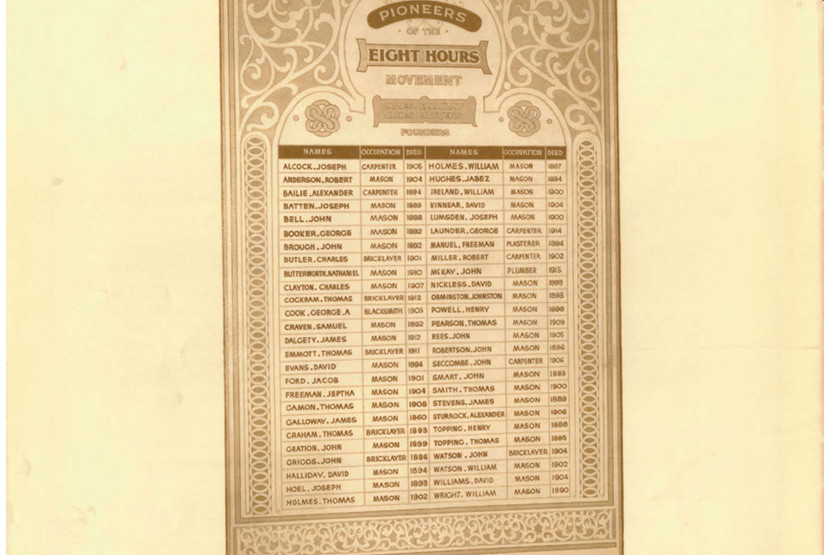 PIONEERS
OF THE
EIGHT HOURS
MOVEMENT
FOUNDERS
NAMES OCCUPATION DIED NAMES OCCUPATION DIED
ALCOCK, JOSEPH CARPENTER 1905 HOLMES, WILLIAM MASON 1887
ANDERSON, ROBERT MASON 1904 HUGHES, JABEZ MASON 1894
BAILIE, ALEXANDER CARPENTER 1894 IRELAND, WILLIAM MASON 1900
BATTEN, JOSEPH MASON 1889 KINNEAR, DAVID MASON 1904
BELL, JOHN MASON 1888 LUMSDEN, JOSEPH MASON 1900
BOOKER, GEORGE MASON 1882 LAUNDER, GEORGE CARPENTER 1914
BROUGH, JOHN MASON 1892 MANUEL, FREEMAN PLASTERER 1894
BUTLER, CHARLES BRICKLAYER 1901 MILLER, ROBERT CARPENTER 1902
BUTTERWORTH, NATHANIEL MASON 1910 MCKAY, JOHN PLUMBER 1915
CLAYTON, CHARLES MASON 1907 NICKLESS, DAVID MASON
COCKRAM, THOMAS BRICKLAYER 1912 ORMINGTON, JOHNSTON MASON 1898
COOK, GEORGE. A BLACKSMITH 1903 POWELL, HENRY MASON
CRAVEN, SAMUEL MASON 1892 PEARSON, THOMAS MASON 1909
DALGETY, JAMES MASON 1912 REES, JOHN MASON 1905
EMMOTT, THOMAS BRICKLAYER 1911 ROBERTSON, JOHN MASON
EVANS, DAVID MASON 1894 SECCOMBE, JOHN CARPENTER 1905
FORD, JACOB MASON 1901 SMART, JOHN MASON 1893
FREEMAN, JEPTHA MASON 1904 SMITH, THOMAS MASON 1900
GAMON, THOMAS MASON 1908 STEVENS, JAMES MASON 1889
GALLOWAY, JAMES MASON 1860 STURROCK, ALEXANDER MASON 1906
GRAHAM, THOMAS BRICKLAYER 1893 TOPPING, HENRY MASON 1888
GRATION, JOHN MASON 1899 TOPPING, THOMAS MASON 1895
GRIGGS, JOHN BRICKLAYER 1886 WATSON, JOHN BRICKLAYER 1904
HALLIDAY, DAVID MASON 1894 WATSON, WILLIAM MASON 1902
HOEL, JOSEPH MASON 1893 WILLIAMS, DAVID MASON 1904
HOLMES, THOMAS MASON 1902 WRIGHT, WILLIAM MASON 1890